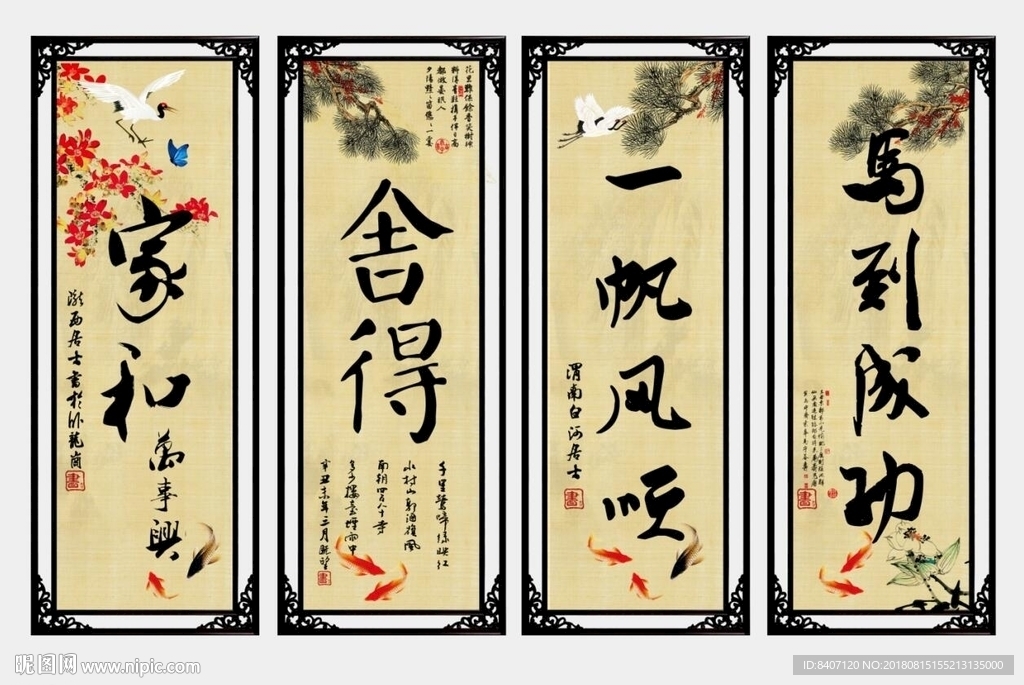 家和
萬事興
隴西居士書於卧龍崗
書
舍得
千里鶯啼綠映紅
水村山郭酒旗風
南朝四百八十寺
多少樓臺煙雨中
辛丑年三月
書
一帆风顺
渭南白河居士
書
馬到成功
書
昵图网 www.nipic.com
ID:8407120 NO:20180815155213135000